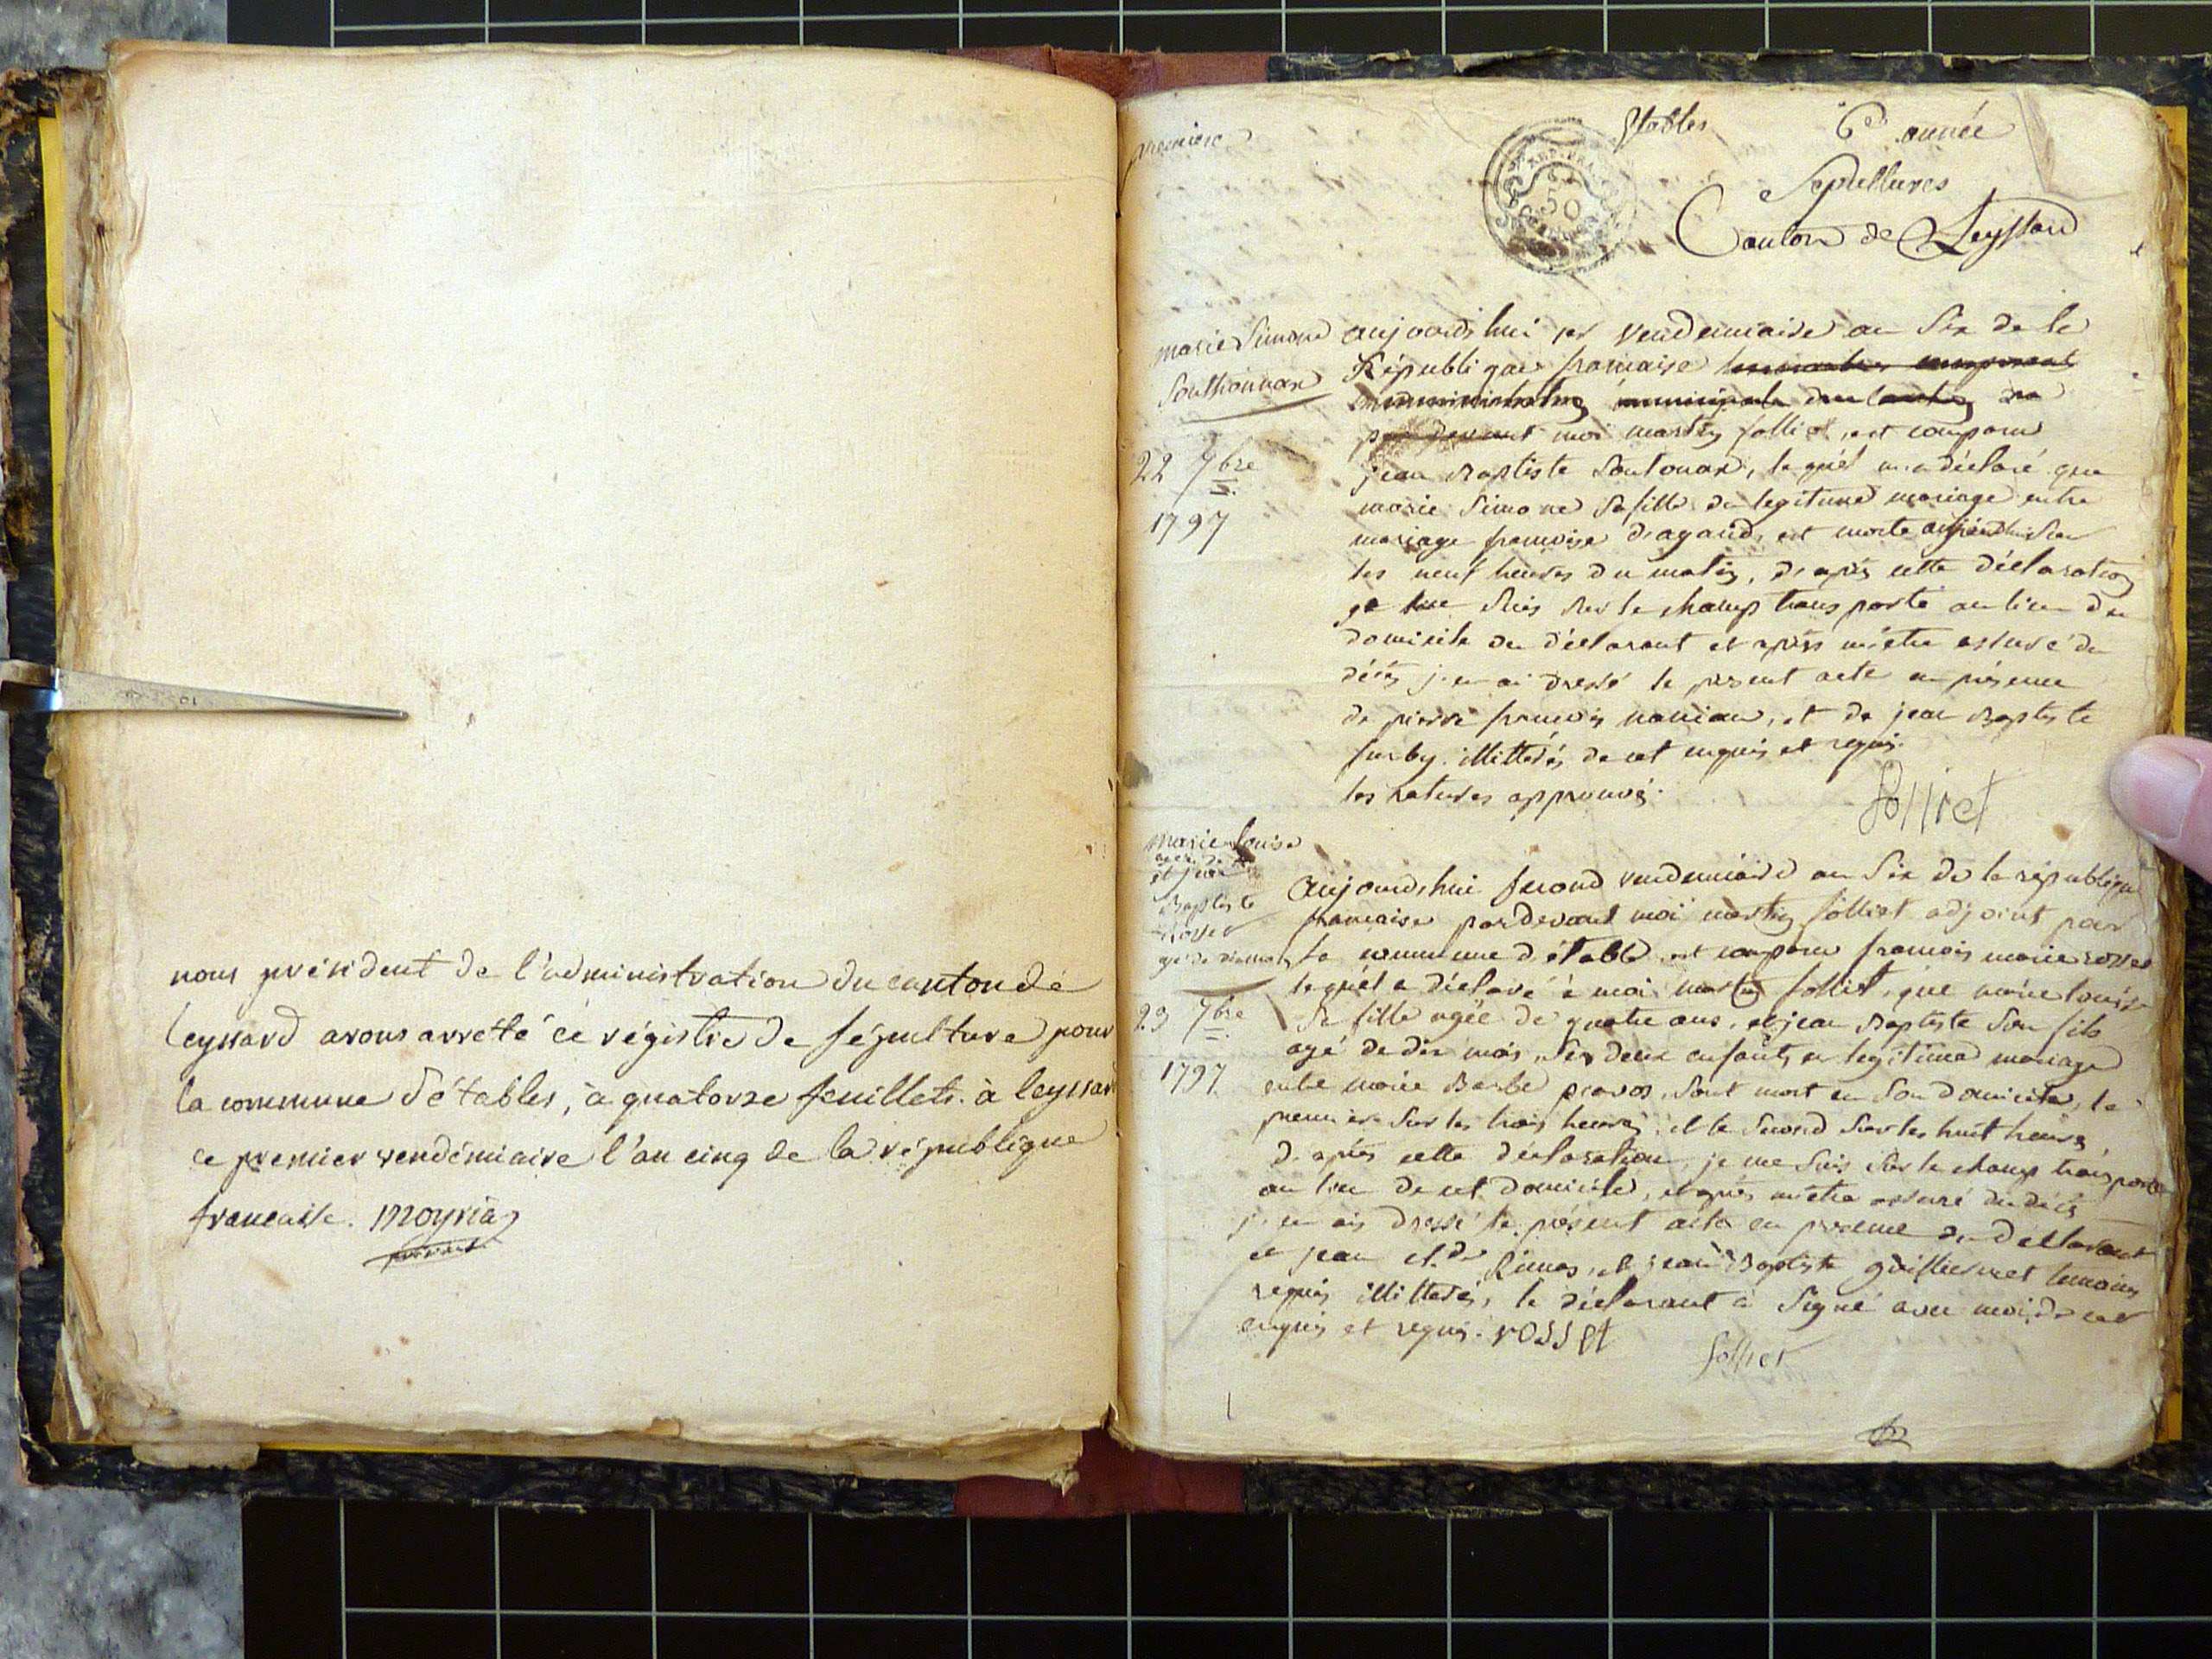 nous président de l'administration du canton de
leyssard avons arrêté ce régistre de sépulture pour
la commune d'étables, à quatorze feuillets. à leyssard
ce premier vendémiaire l'an cinq de la république
francaise. moyria
première
Etables 6e année
Sepultures
Canton de Leyssard
marie Simone
Southonnax
22 7bre
1797
aujourdhui 1er vendemiaire an Six de la
République francaise
par devant moi martin folliet, est comparu
jean Baptiste Soutonax, le quel m'a déclaré que
marie Simone Sa fille de legitime mariage entre
mariage francoise dagaud, est morte aujourdhui Sur
les neuf heures du matin, d'après cette déclaration
je me Suis Sur le champ transporté au lieu du
domicile du déclarant et après m'être assuré du
décès j'en ai dressé le present acte en présence
de pierre francois et de jean Baptiste
furby. illitterés de cet enquis et requis.
les ratures approuvés.
folliet
marie louise
et jean
Baptiste
Rosset
23 7bre
1797
aujourdhui second vendemiaire an Six de la république
francaise pardevant moi martin folliet adjoint pour
la commune d'étable est comparu francois marie rosset
lequel a déclaré à moi martin folliet, que marie louise
Sa fille agée de quatre ans, et jean Baptiste Son fils
agé de dix mois, Ses deux enfants en legitime mariage
entre marie Barbe pravos, Sont mort en Son domicile, la
premiere Sur les trois heures, et le Second Sur les huit heures
d'après cette déclaration, je me Suis Sur le champ transporté
au lieu de cet domicile, et après m'être assuré du décès
j'en ais dressé le présent acte en presence du déclarant
et jean cl.de Rimas, et jean Baptiste guillermet temoins
requis illitterés, le déclarant à Signé avec moi, de cet
enquis et requis. rosset
folliet